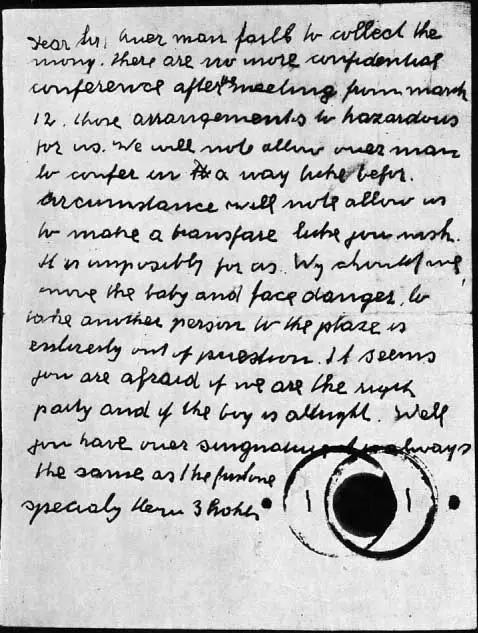 Dear Sir, ouer man faills to collect the
mony. there are no more confidential
conference after the meeting from march
12. those arrangements to hazardous
for us. We will note allow ouer man
to confer in a way licke befor.
circumstance will note allow us
to make a transfare licke you wish.
It is impossibly for us. Wy should we
move the baby and face danger. to
take another person to the plase is
entirerly out of question. It seems
you are afraid if we are the rigth
party and if the boy is allright. Well
you have ouer singnature. always
the same as the first one
specialy them 3 holes